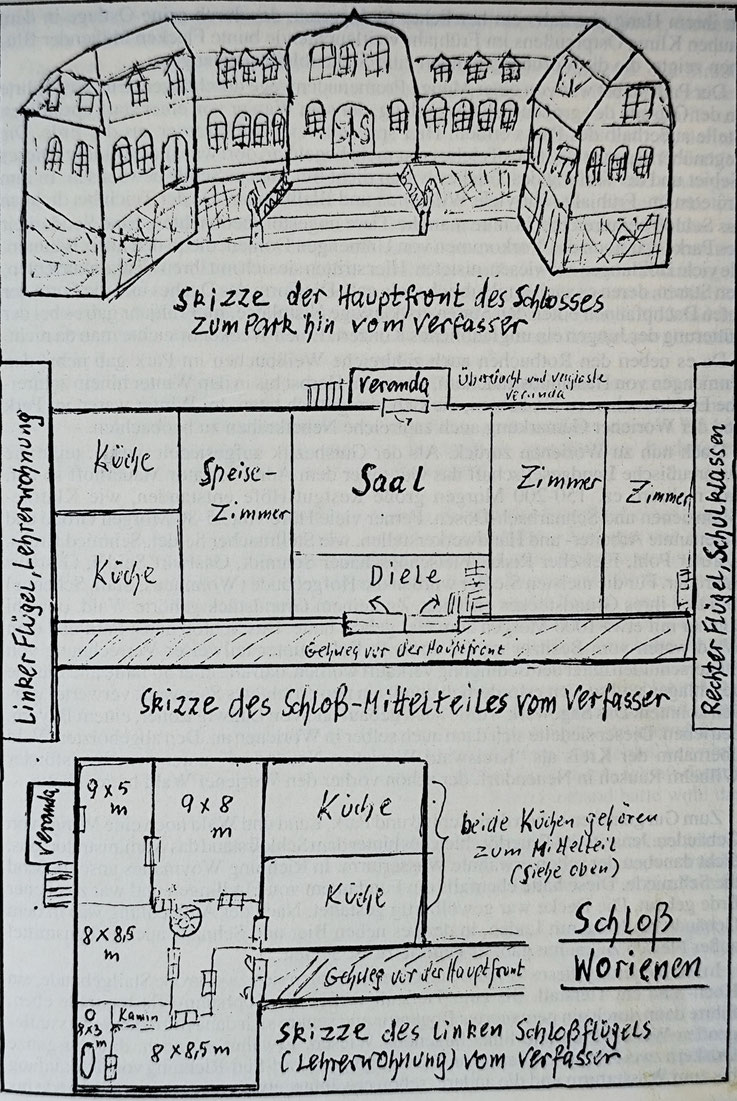 Skizze der Hauptfront des Schlosses
zum Park hin vom Verfasser
Veranda
Überdacht und verglaste
Veranda
Linker Flügel, Lehrerwohnung
Küche
Speise-
Zimmer
Saal
Zimmer
Zimmer
Rechter Flügel, Schulklassen
Küche
Diele
Gehweg vor der Hauptfront
Skizze des Schloß-Mittelteiles vom Verfasser
Veranda
9 x 5
m
9 x 8
m
Küche
beide Küchen gehören
zum Mittelteil
(Siehe oben)
Küche
8 x 8,5
m
Schloß
Worienen
Gehweg vor der Hauptfront
Kamin
m
8 x 8,5 m
Skizze des Linken Schloßflügels
(Lehrerwohnung) vom Verfasser